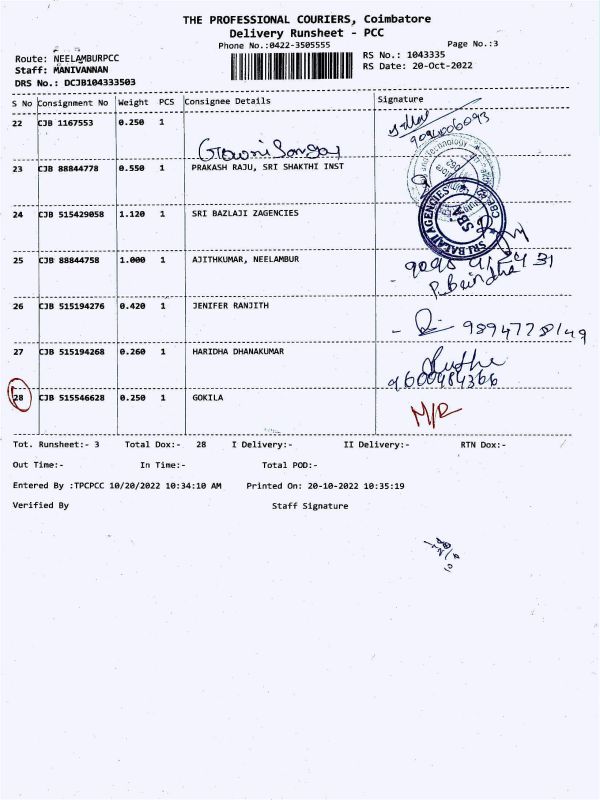 THE PROFESSIONAL COURIERS, Coimbatore
Delivery Runsheet - PCC
Phone No.:0422-3505555
Page No.:3
Route: NEELAMBURPCC
RS No.: 1043335
Staff: MANIVANNAN
RS Date: 20-Oct-2022
DRS No.: DCJB104333503
S No Consignment No Weight PCS Consignee Details Signature
22 CJB 1167553 0.250 1
23 CJB 88844778 0.550 1 PRAKASH RAJU, SRI SHAKTHI INST
24 CJB 515429058 1.120 1 SRI BAZLAJI ZAGENCIES
SRI BALAJI AGENCIES
SBA
25 CJB 88844758 1.000 1 AJITHKUMAR, NEELAMBUR
26 CJB 515194276 0.420 1 JENIFER RANJITH
27 CJB 515194268 0.260 1 HARIDHA DHANAKUMAR
9600484366
28 CJB 515546628 0.250 1 GOKILA
M/R
Tot. Runsheet:- 3 Total Dox:- 28 I Delivery:- II Delivery:- RTN Dox:-
Out Time:- In Time:- Total POD:-
Entered By :TPCPCC 10/20/2022 10:34:10 AM Printed On: 20-10-2022 10:35:19
Verified By Staff Signature